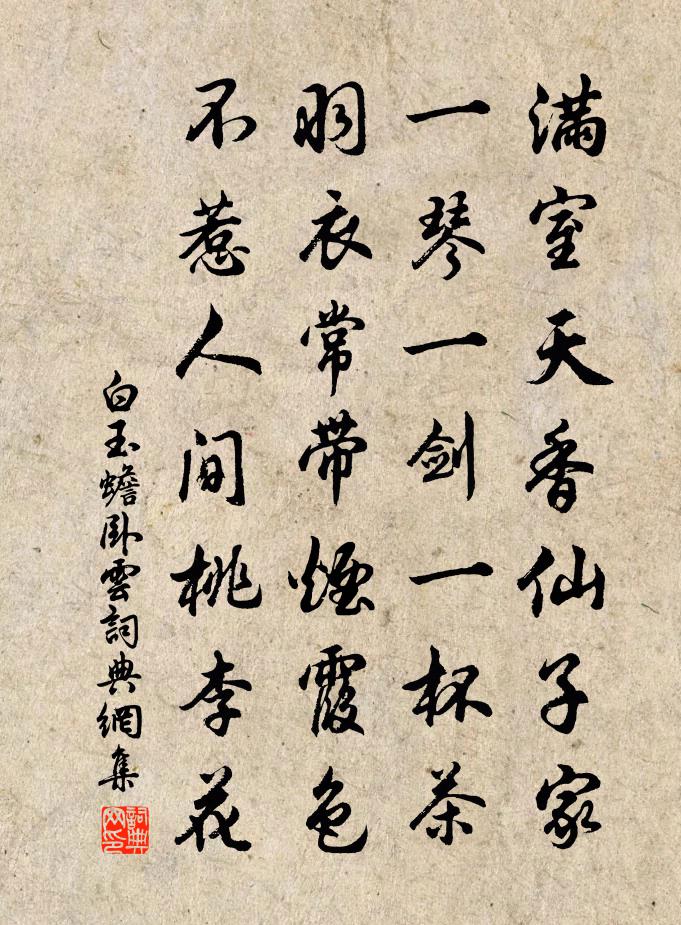 满室天香仙子家
一琴一剑一杯茶
羽衣常带煙霞色
不惹人间桃李花
白玉蟾卧雲詞典網集
詞典網印